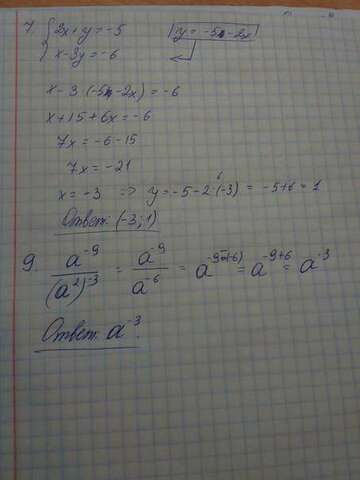 7. { 2x+y=-5 y=-5-2x
x-3y=-6
x-3·(-5-2x)=-6
x+15+6x=-6
7x=-6-15
7x=-21
x=-3 => y=-5-2·(-3)=-5+6=1
Ответ: (-3;1)
9. a^-9/(a^2)^-3 = a^-9/a^-6 = a^-9-(-6) = a^-9+6 = a^-3
Ответ: a^-3.